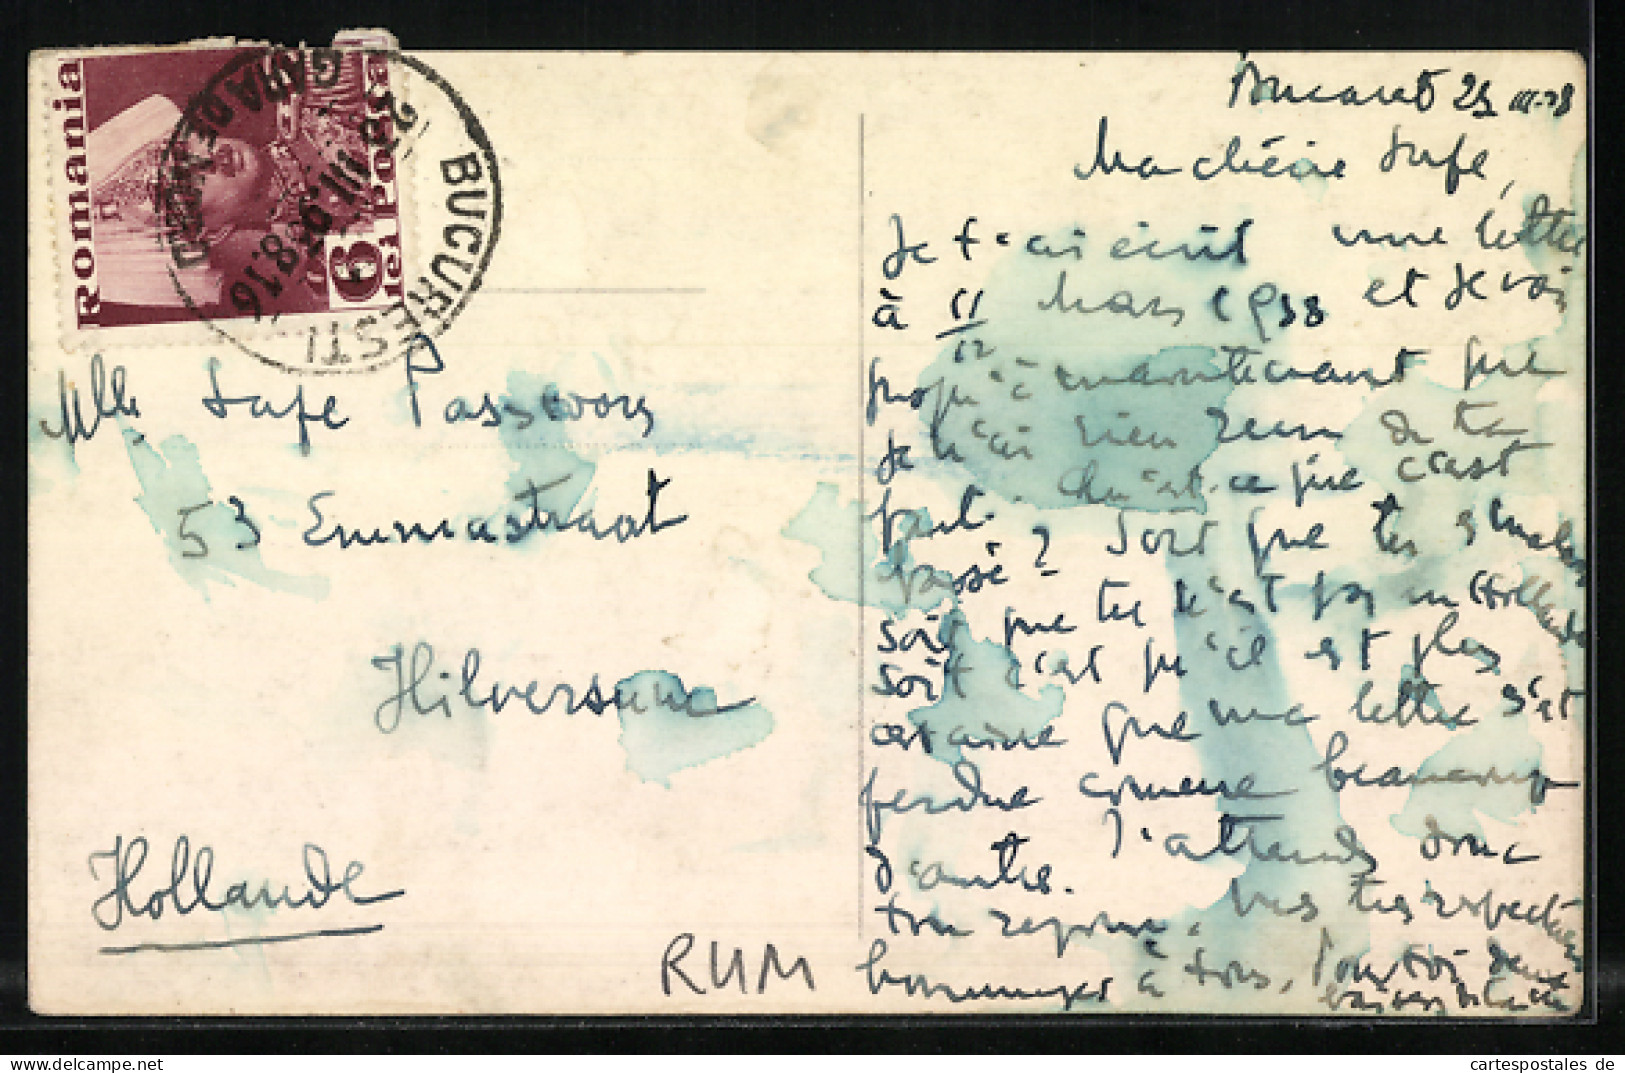 Romania
Posta
6
lei
BUCUREȘTI
GARA DE NORD
Mlle Safe
53 Emmastraat
Hilversum
Hollande
RUM
Bucarest 25 III 38
Ma chérie Safe,
Je t'ai écrit une lettre
à 11/12 Mars 1938 et je vois
jusqu'à maintenant que
je n'ai rien reçu de ta
part. Qu'est-ce que c'est
passé? Soit que tu es
soit que tu n'est pas en Hollande
soit c'est qu'il est plus
certaine que ma lettre s'est
perdue comme beaucoup
d'autre. J'attends donc
ton réponse. Mes très respectueux
hommages à tous, Pour toi
cartespostales de